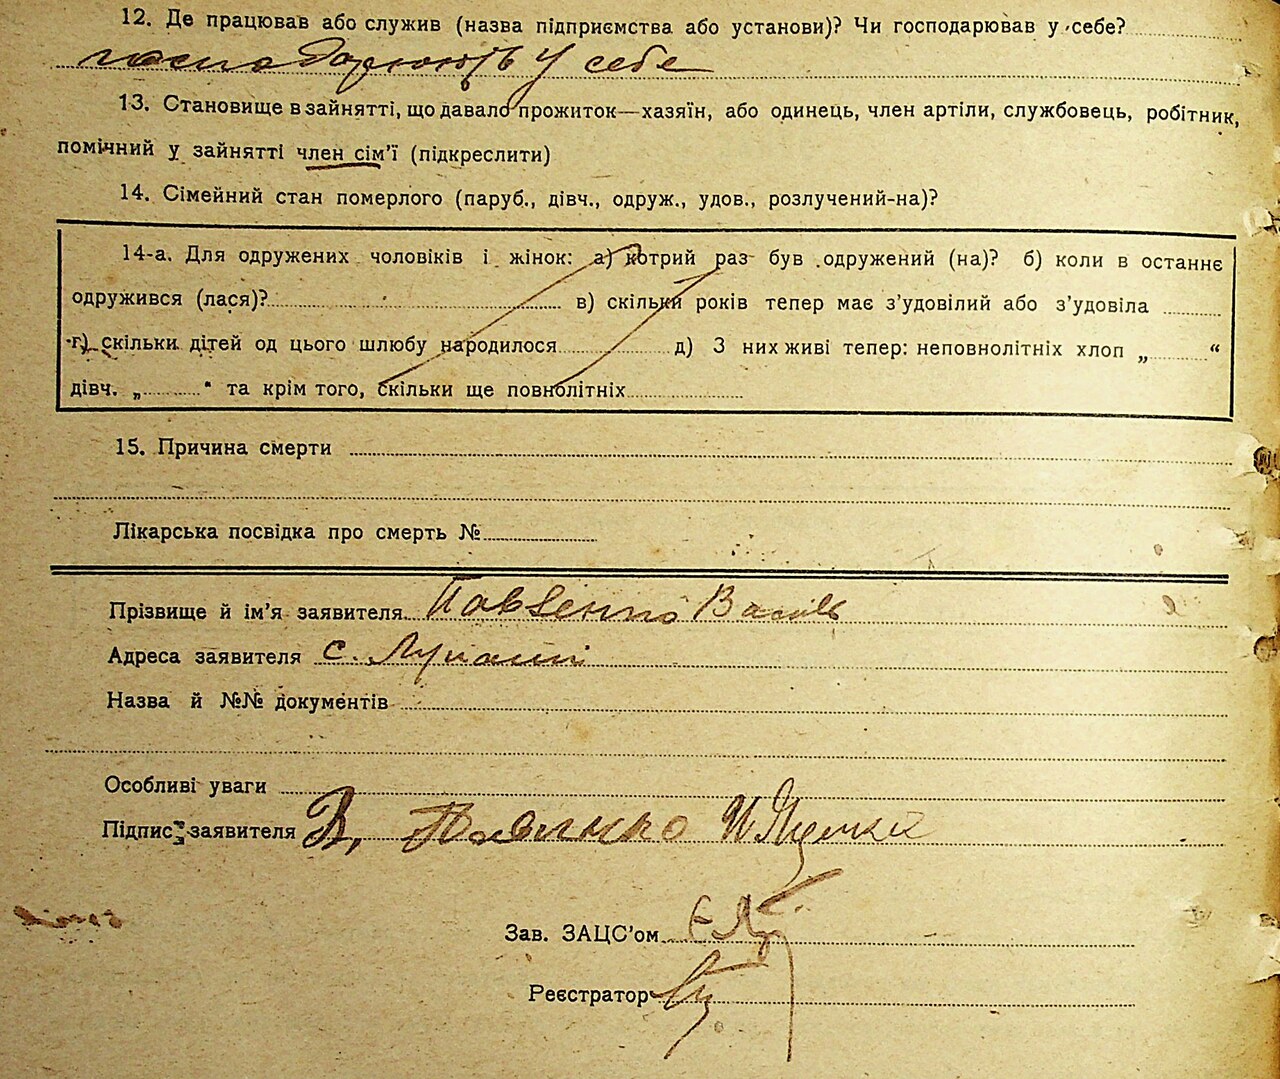 12. Де працював або служив (назва підприємства або установи)? Чи господарював у себе?
господарюють у себе
13. Становище в зайнятті, що давало прожиток—хазяїн, або одинець, член артіли, службовець, робітник,
помічний у зайнятті член сім'ї (підкреслити)
14. Сімейний стан померлого (паруб., дівч., одруж., удов., розлучений-на)?
14-а. Для одружених чоловіків і жінок: а) котрий раз був одружений (на)? б) коли в останнє
одружився (лася)? в) скільки років тепер має з'удовілий або з'удовіла
г) скільки дітей од цього шлюбу народилося д) З них живі тепер: неповнолітніх хлоп „ “
дівч. „ “ та крім того, скільки ще повнолітніх
15. Причина смерти
Лікарська посвідка про смерть №
Прізвище й ім'я заявителя Павленко Василь
Адреса заявителя с.
Назва й №№ документів
Особливі уваги
Підпис заявителя В. Павленко
Зав. ЗАЦС'ом
Реєстратор